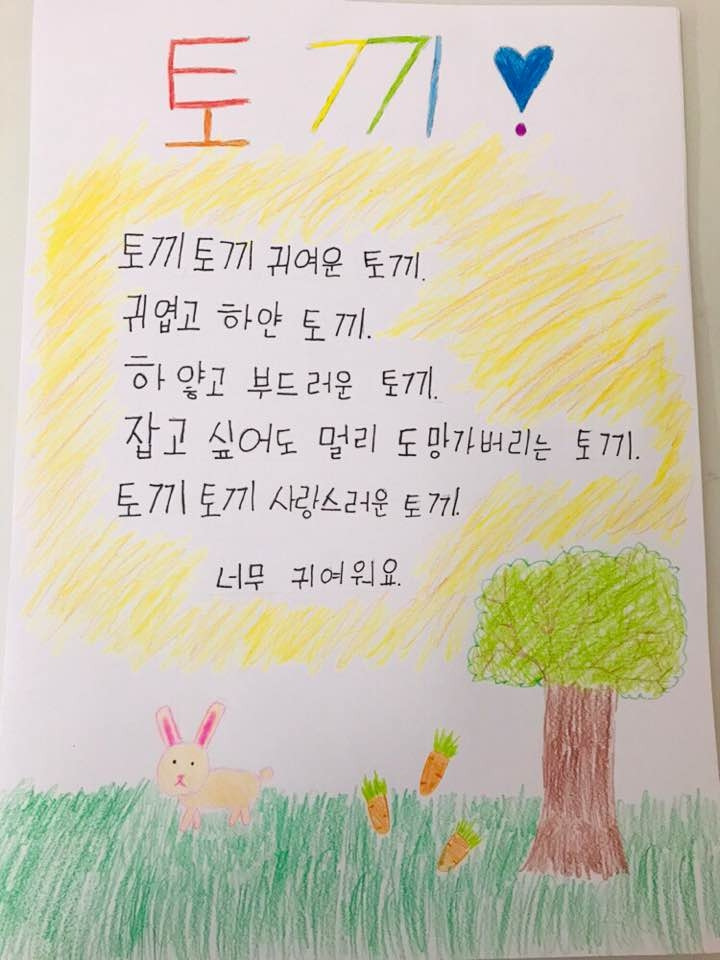 토끼
토끼 토끼 귀여운 토끼.
귀엽고 하얀 토끼.
하얗고 부드러운 토끼.
잡고 싶어도 멀리 도망가버리는 토끼.
토끼 토끼 사랑스러운 토끼.
너무 귀여워요.